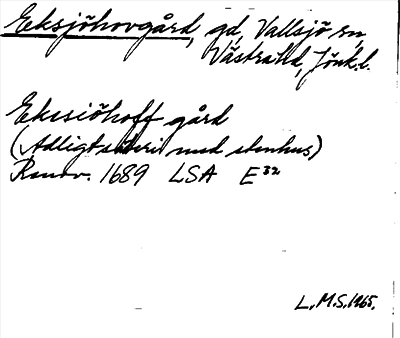 Eksjöhovgård, gd, Vallsjö sn,
Västra hd, Jönk.l.
Ekssiöhoff gård
(Adligt säteri med stenhus)
Renov. 1689 LSA E32
L.M.S. 1965.